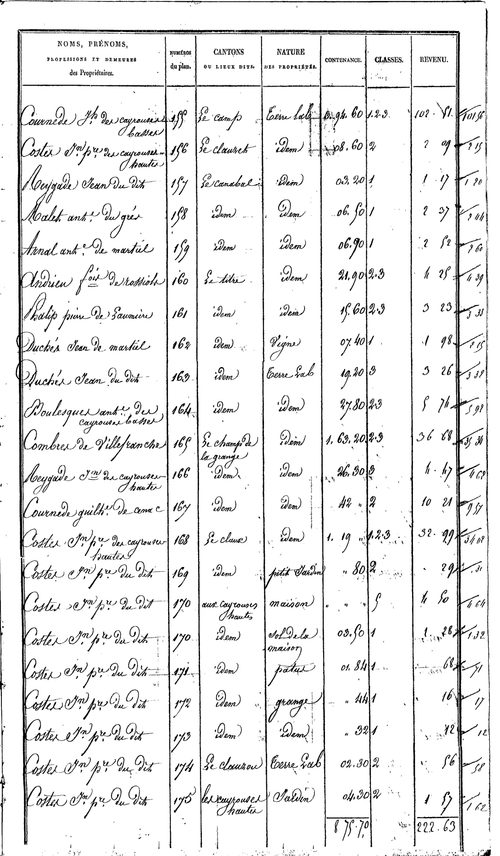 NOMS, PRÉNOMS, PROFESSIONS ET DEMEURES des Propriétaires. NUMÉROS du plan. CANTONS OU LIEUX DITS. NATURE DES PROPRIÉTÉS. CONTENANCE. CLASSES. REVENU.
Cournède Jh des cayrouses basses 155 Le camp Terre lab 94.60 1.2.3 102. 51
Costes Jn pre des cayrouses hautes 156 Le clauzet idem 08.60 2 2 09 2 15
Reygade Jean du dit 157 Le canabal idem 03.20 1 1 17 1 20
Malet ant.e du grés 158 idem idem 06.50 1 2 37
Arnal ant.e de martiel 159 idem idem 06.90 1 2 52 2 60
Andrieu fois de rossiols 160 Le titre idem 21.90 2.3 4 25 4 39
Phalip pierre de Laumiere 161 idem idem 15.60 2.3 3 23 3 33
Duchés Jean de martiel 162 idem Vigne 07.40 1 1 98 2 15
Duchés Jean du dit 163 idem Terre Lab 19.20 3 3 26 3 38
Boulesques ant.e des cayrouses basses 164 idem idem 27.80 2.3 5 76 5 98
Combres de Villefranche 165 Le champ de la grange idem 1.63.20 2.3 36 68
Reygade Jn des cayrouses hautes 166 idem idem 26.30 3 4 47 4 62
Cournede guilh.e de 167 idem idem 42 " 2 10 21 9 57
Costes Jn pre des cayrouses hautes 168 Le claux idem 1. 19 " 1.2.3 32. 99 34 02
Costes Jn pre du dit 169 idem petit Jardin " 80 2 " 29 " 31
Costes Jn pre du dit 170 aux cayrouses hautes maison " " 5 4 50 4 64
Costes Jn pre du dit 170 idem sol de la maison 03.50 1 1 28 1 32
Costes Jn pre du dit 171 idem patus 01.84 1 " 68 " 71
Costes Jn pre du dit 172 idem grange " 44 1 " 16 " 17
Costes Jn pre du dit 173 idem idem " 32 1 " 12 " 12
Costes Jn pre du dit 174 Le clauzou Terre Lab 02.30 2 " 56 " 58
Costes Jn pre du dit 175 les cayrouses hautes Jardin 04.30 2 1 57 1 62
8 75.70 222.63